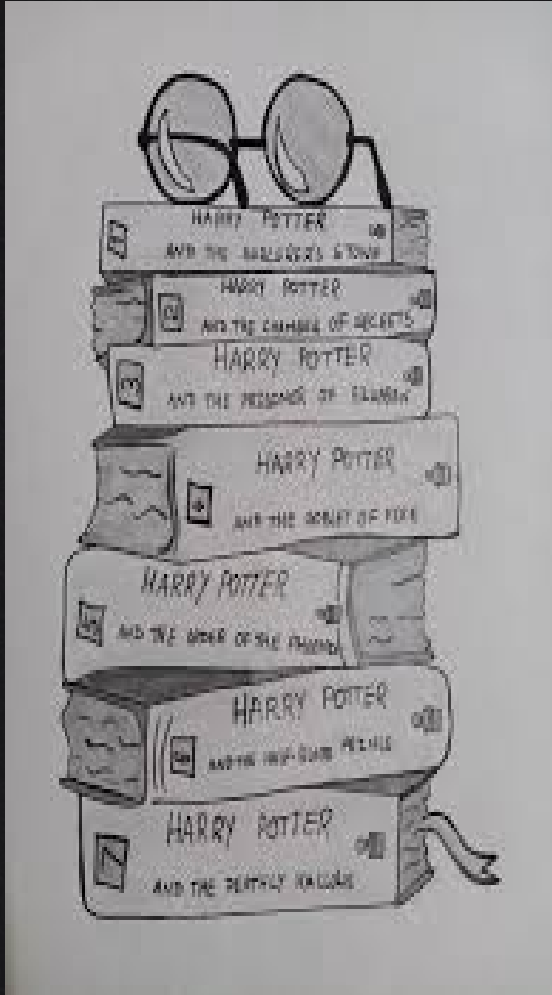 1
HARRY POTTER
AND THE SORCERER'S STONE
2
HARRY POTTER
AND THE CHAMBER OF SECRETS
3
HARRY POTTER
AND THE PRISONER OF AZKABAN
4
HARRY POTTER
AND THE GOBLET OF FIRE
5
HARRY POTTER
AND THE ORDER OF THE PHOENIX
6
HARRY POTTER
AND THE HALF-BLOOD PRINCE
7
HARRY POTTER
AND THE DEATHLY HALLOWS